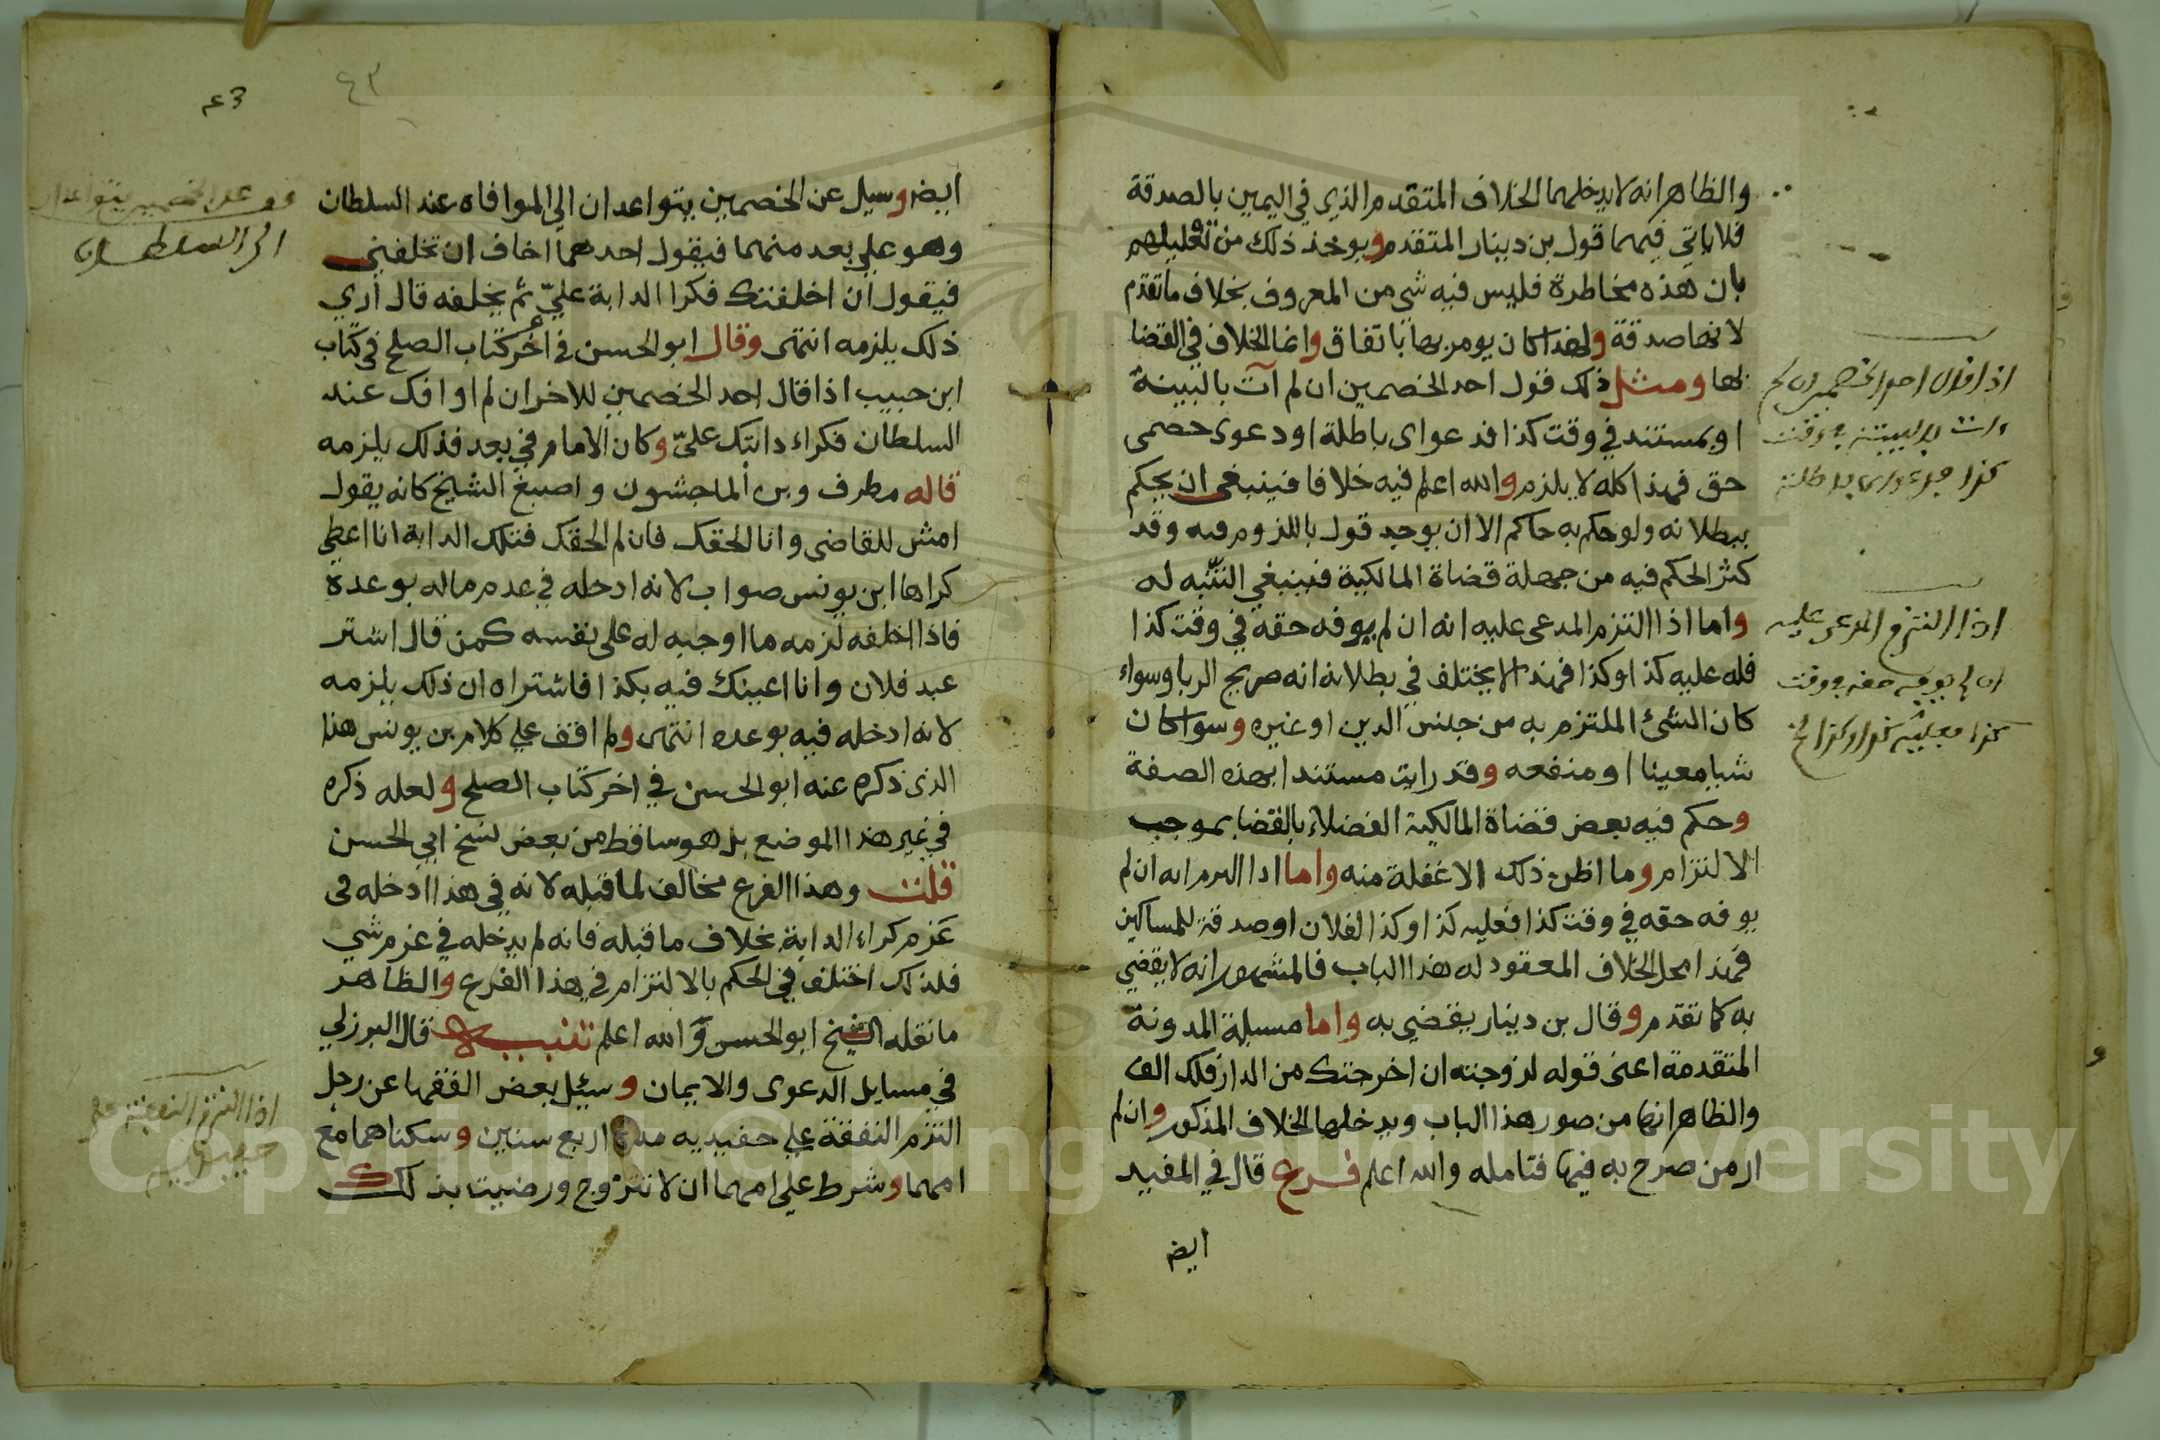 والظاهر انه لا يدخلهما الخلاف المتقدم الذي في اليمين بالصدقة
فلا ياتي فيهما قول بن دينار المتقدم ويوخذ ذلك من تعليلهم
بان هذه مخاطرة فليس فيه شي من المعروف بخلاف ما تقدم
لانها صدقة ولهذا كان يومر بها باتفاق وانما الخلاف في القضا
بها ومثل ذلك قول احد الخصمين ان لم آت بالبينة
او بمستند في وقت كذا فدعواى باطلة او دعوى خصمى
حق فهذا كله لا يلزم والله اعلم فيه خلافا فينبغى ان يحكم
ببطلانه ولو حكم به حاكم الا ان يوجد قول باللزوم فيه وقد
كثر الحكم فيه من جهلة قضاة المالكية فينبغي التنبه له
واما اذا التزم المدعى عليه انه ان لم يوفه حقه في وقت كذا
فله عليه كذا وكذا فهذا لا يختلف في بطلانه انه صريح الربا وسواء
كان الشئ الملتزم به من جنس الدين او غيره وسوا كان
شيا معينا او منفعه وقد رايت مستندا بهذه الصفة
وحكم فيه بعض قضاة المالكية الفضلاء بالقضا بموجب
الالتزام وما اظن ذلك الا غفلة منه واما اذا التزم انه ان لم
يوفه حقه في وقت كذا فعليه كذا وكذا لفلان او صدقة للمساكين
فهذا محل الخلاف المعقود له هذا الباب فالمشهور انه لا يقضي
به كما تقدم وقال بن دينار يقضي به واما مسيلة المدونة
المتقدمة اعنى قوله لزوجته ان اخرجتك من الدار فلك الف
والظاهر انها من صور هذا الباب ويدخلها الخلاف المذكور وان لم
ار من صرح به فيها فتامله والله اعلم فرع قال في المفيد
ايض
اذا قال احد الخصمين ان لم
ات بالبينة في وقت
كذا فدعواى باطلة
اذا التزم المدعى عليه
ان لم يوفيه حقه في وقت
كذا فعليه كذا وكذا الخ
٤٣
ايض وسيل عن الخصمين يتواعدان الي الموافاه عند السلطان
وهو على بعد منهما فيقول احدهما اخاف ان تخلفني
فيقول ان اخلفتك فكرا الدابة عليّ ثم يخلفه قال ارى
ذلك يلزمه انتهى وقال ابو الحسن في اخر كتاب الصلح في كتاب
ابن حبيب اذا قال احد الخصمين للاخر ان لم اوافك عند
السلطان فكراء دابتك عليّ وكان الامام في بعد فذلك يلزمه
قاله مطرف وبن الماجشون واصبغ الشيخ كانه يقول
امش للقاضى وانا الحقك فان لم الحقك فتلك الدابة انا اعطي
كراها ابن يونس صواب لانه ادخله في عدم ماله بوعده
فاذا اخلفه لزمه ما اوجبه له على نفسه كمن قال اشتر
عبد فلان وانا اعينك فيه بكذا فاشتراه ان ذلك يلزمه
لانه ادخله فيه بوعده انتهى ولم اقف على كلام بن يونس هذا
الذى ذكره عنه ابو الحسن في اخر كتاب الصلح ولعله ذكره
في غير هذا الموضع بل هو ساقط من بعض نسخ ابي الحسن
قلت وهذا الفرع مخالف لما قبله لانه في هذا ادخله فى
غرم كراء الدابة بخلاف ما قبله فانه لم يدخله في غرم شي
فلذلك اختلف في الحكم بالالتزام في هذا الفرع والظاهر
ما نقله الشيخ ابو الحسن والله اعلم تنبيه قال البرزلي
في مسايل الدعوى والايمان وسيئل بعض الفقها عن رجل
التزم النفقة على حفيديه مدة اربع سنين وسكناهما مع
امهما وشرط على امهما ان لا تتزوج ورضيت بذلك
على الخصمين يتواعدان
الى السلطان
اذا التزم النفقة على
حفيديه